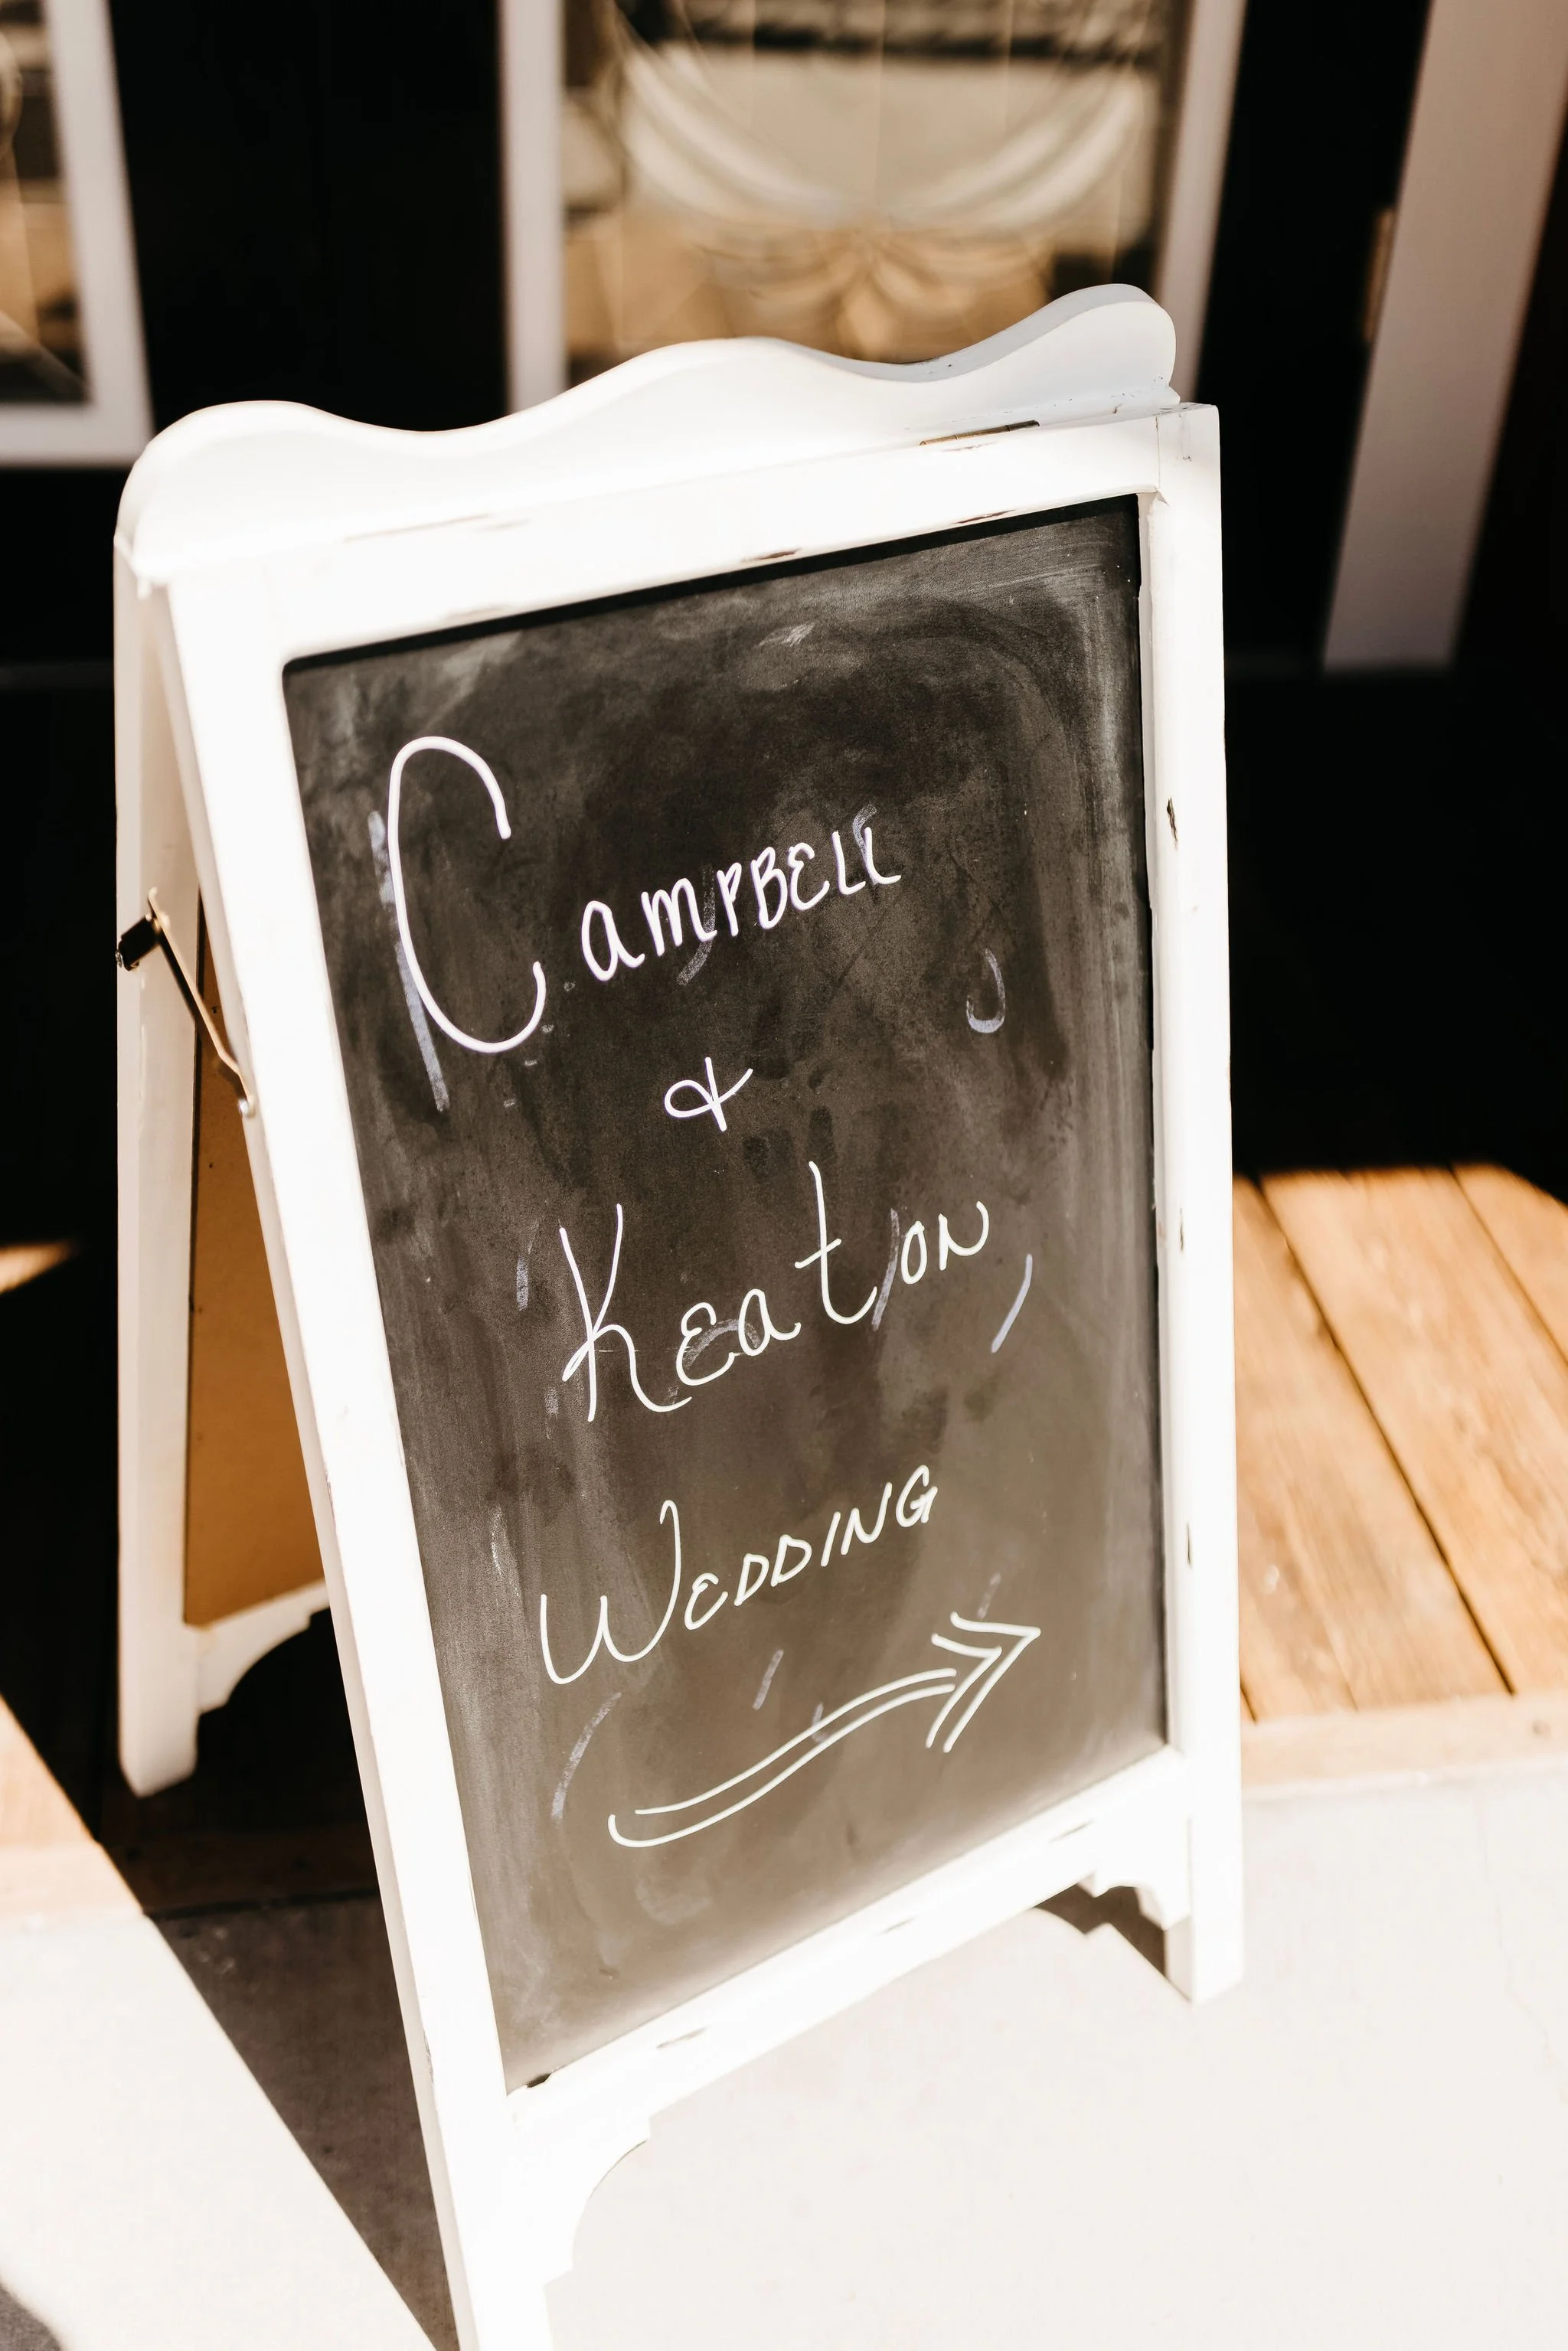 Campbell
&
Keaton
Wedding